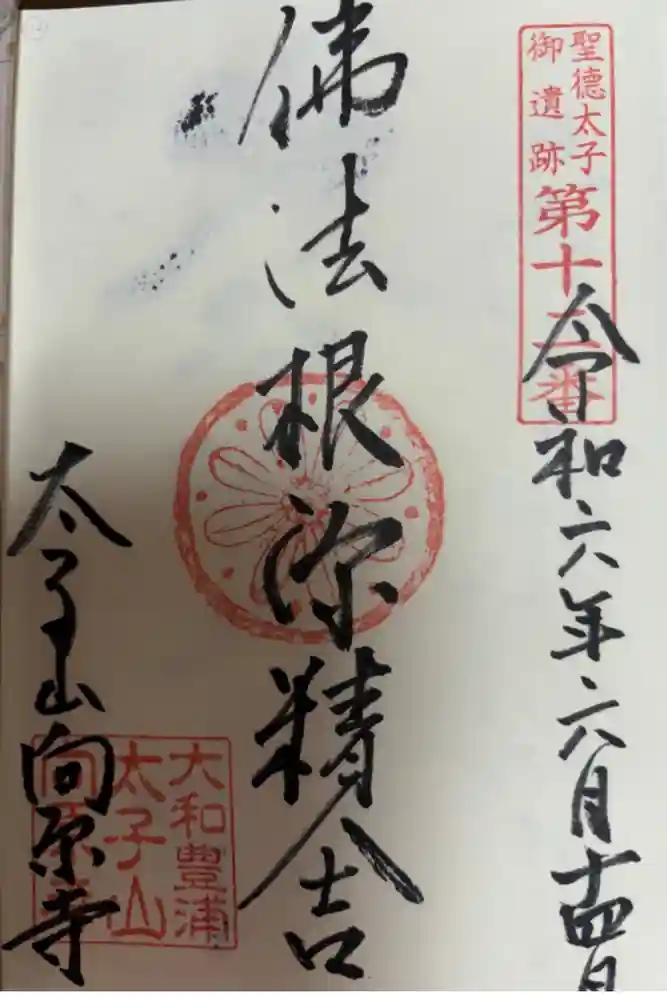 聖徳太子
御遺跡
第十二番
令和六年六月十四日
佛法根源精舎
太子山向原寺
大和豊浦
太子山
向原寺